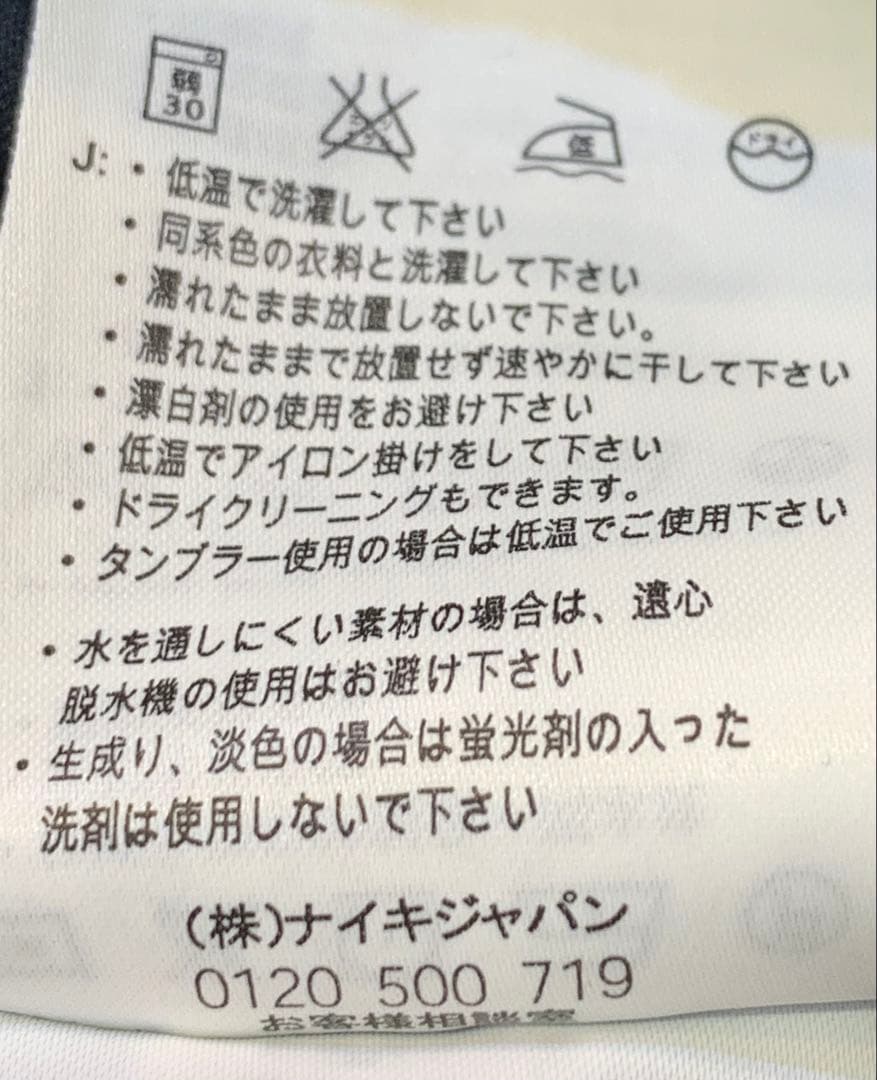 弱
30
低
ドライ
J: ・低温で洗濯して下さい
・同系色の衣料と洗濯して下さい
・濡れたまま放置しないで下さい。
・濡れたままで放置せず速やかに干して下さい
・漂白剤の使用をお避け下さい
・低温でアイロン掛けをして下さい
・ドライクリーニングもできます。
・タンブラー使用の場合は低温でご使用下さい
・水を通しにくい素材の場合は、遠心
脱水機の使用はお避け下さい
・生成り、淡色の場合は蛍光剤の入った
洗剤は使用しないで下さい
(株)ナイキジャパン
0120 500 719
お客様相談室